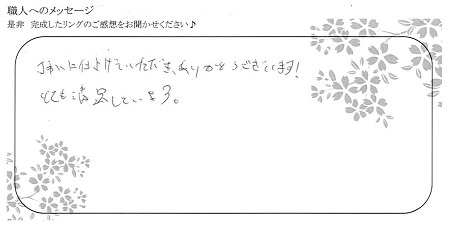 職人へのメッセージ
是非 完成したリングのご感想をお聞かせください♪
丁寧に仕上げていただき、ありがとうございます!
とても満足しています。